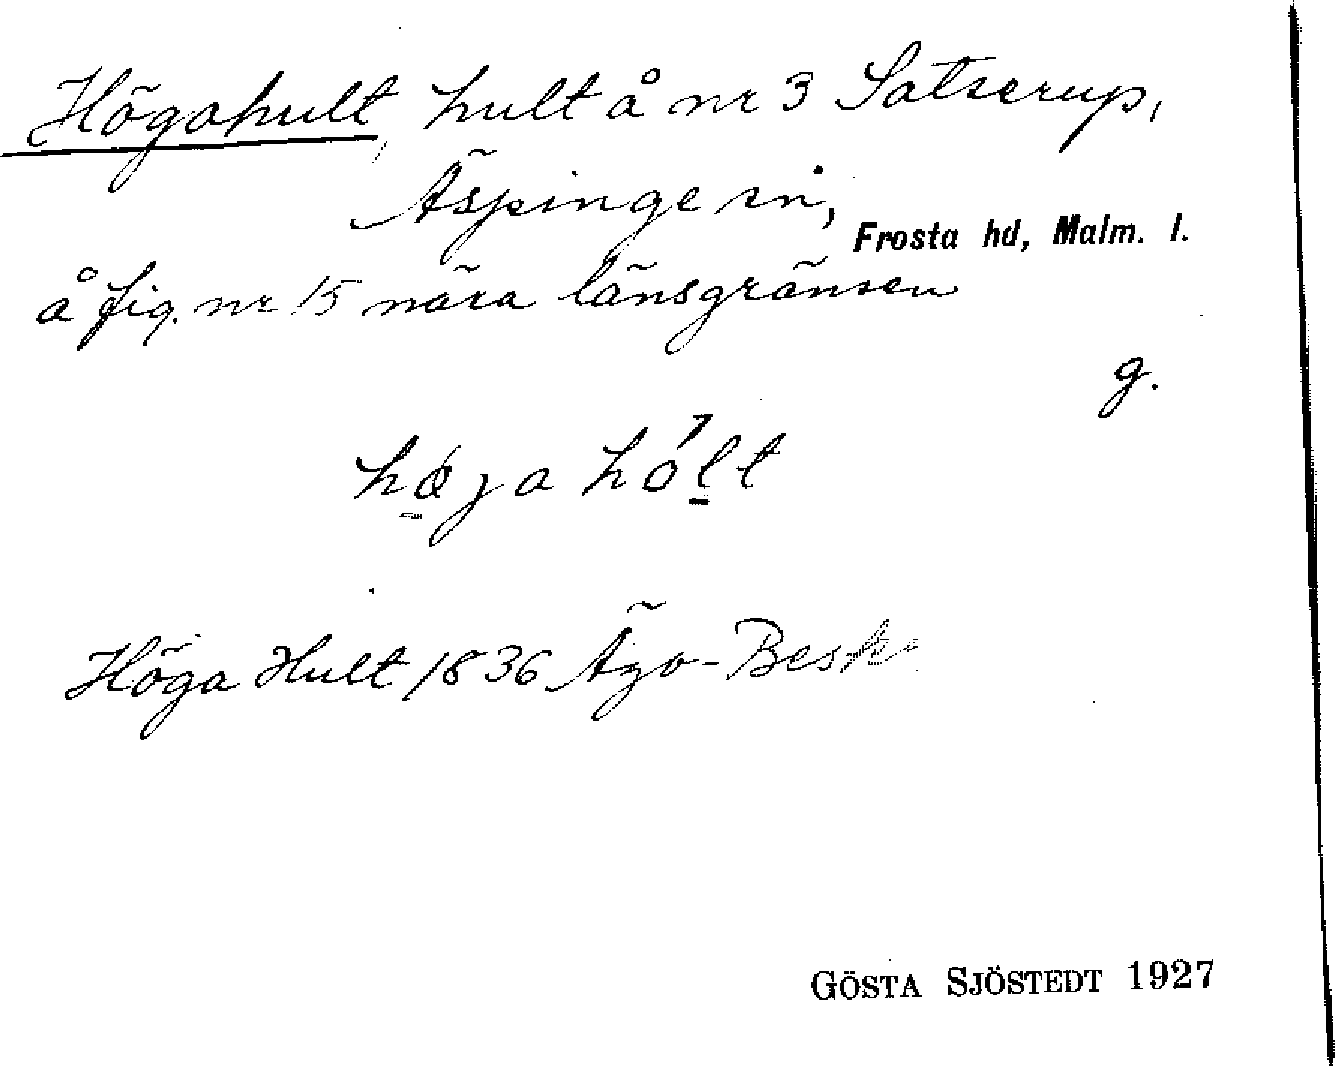 Högahult, hult å nr 3 Satserup,
Äspinge sn, Frosta hd, Malm. l.
å fig. nr 15 nära länsgränsen
g.
høja hólt
Höga Hult 1836 Äzo-Beskr
GÖSTA SJÖSTEDT 1927